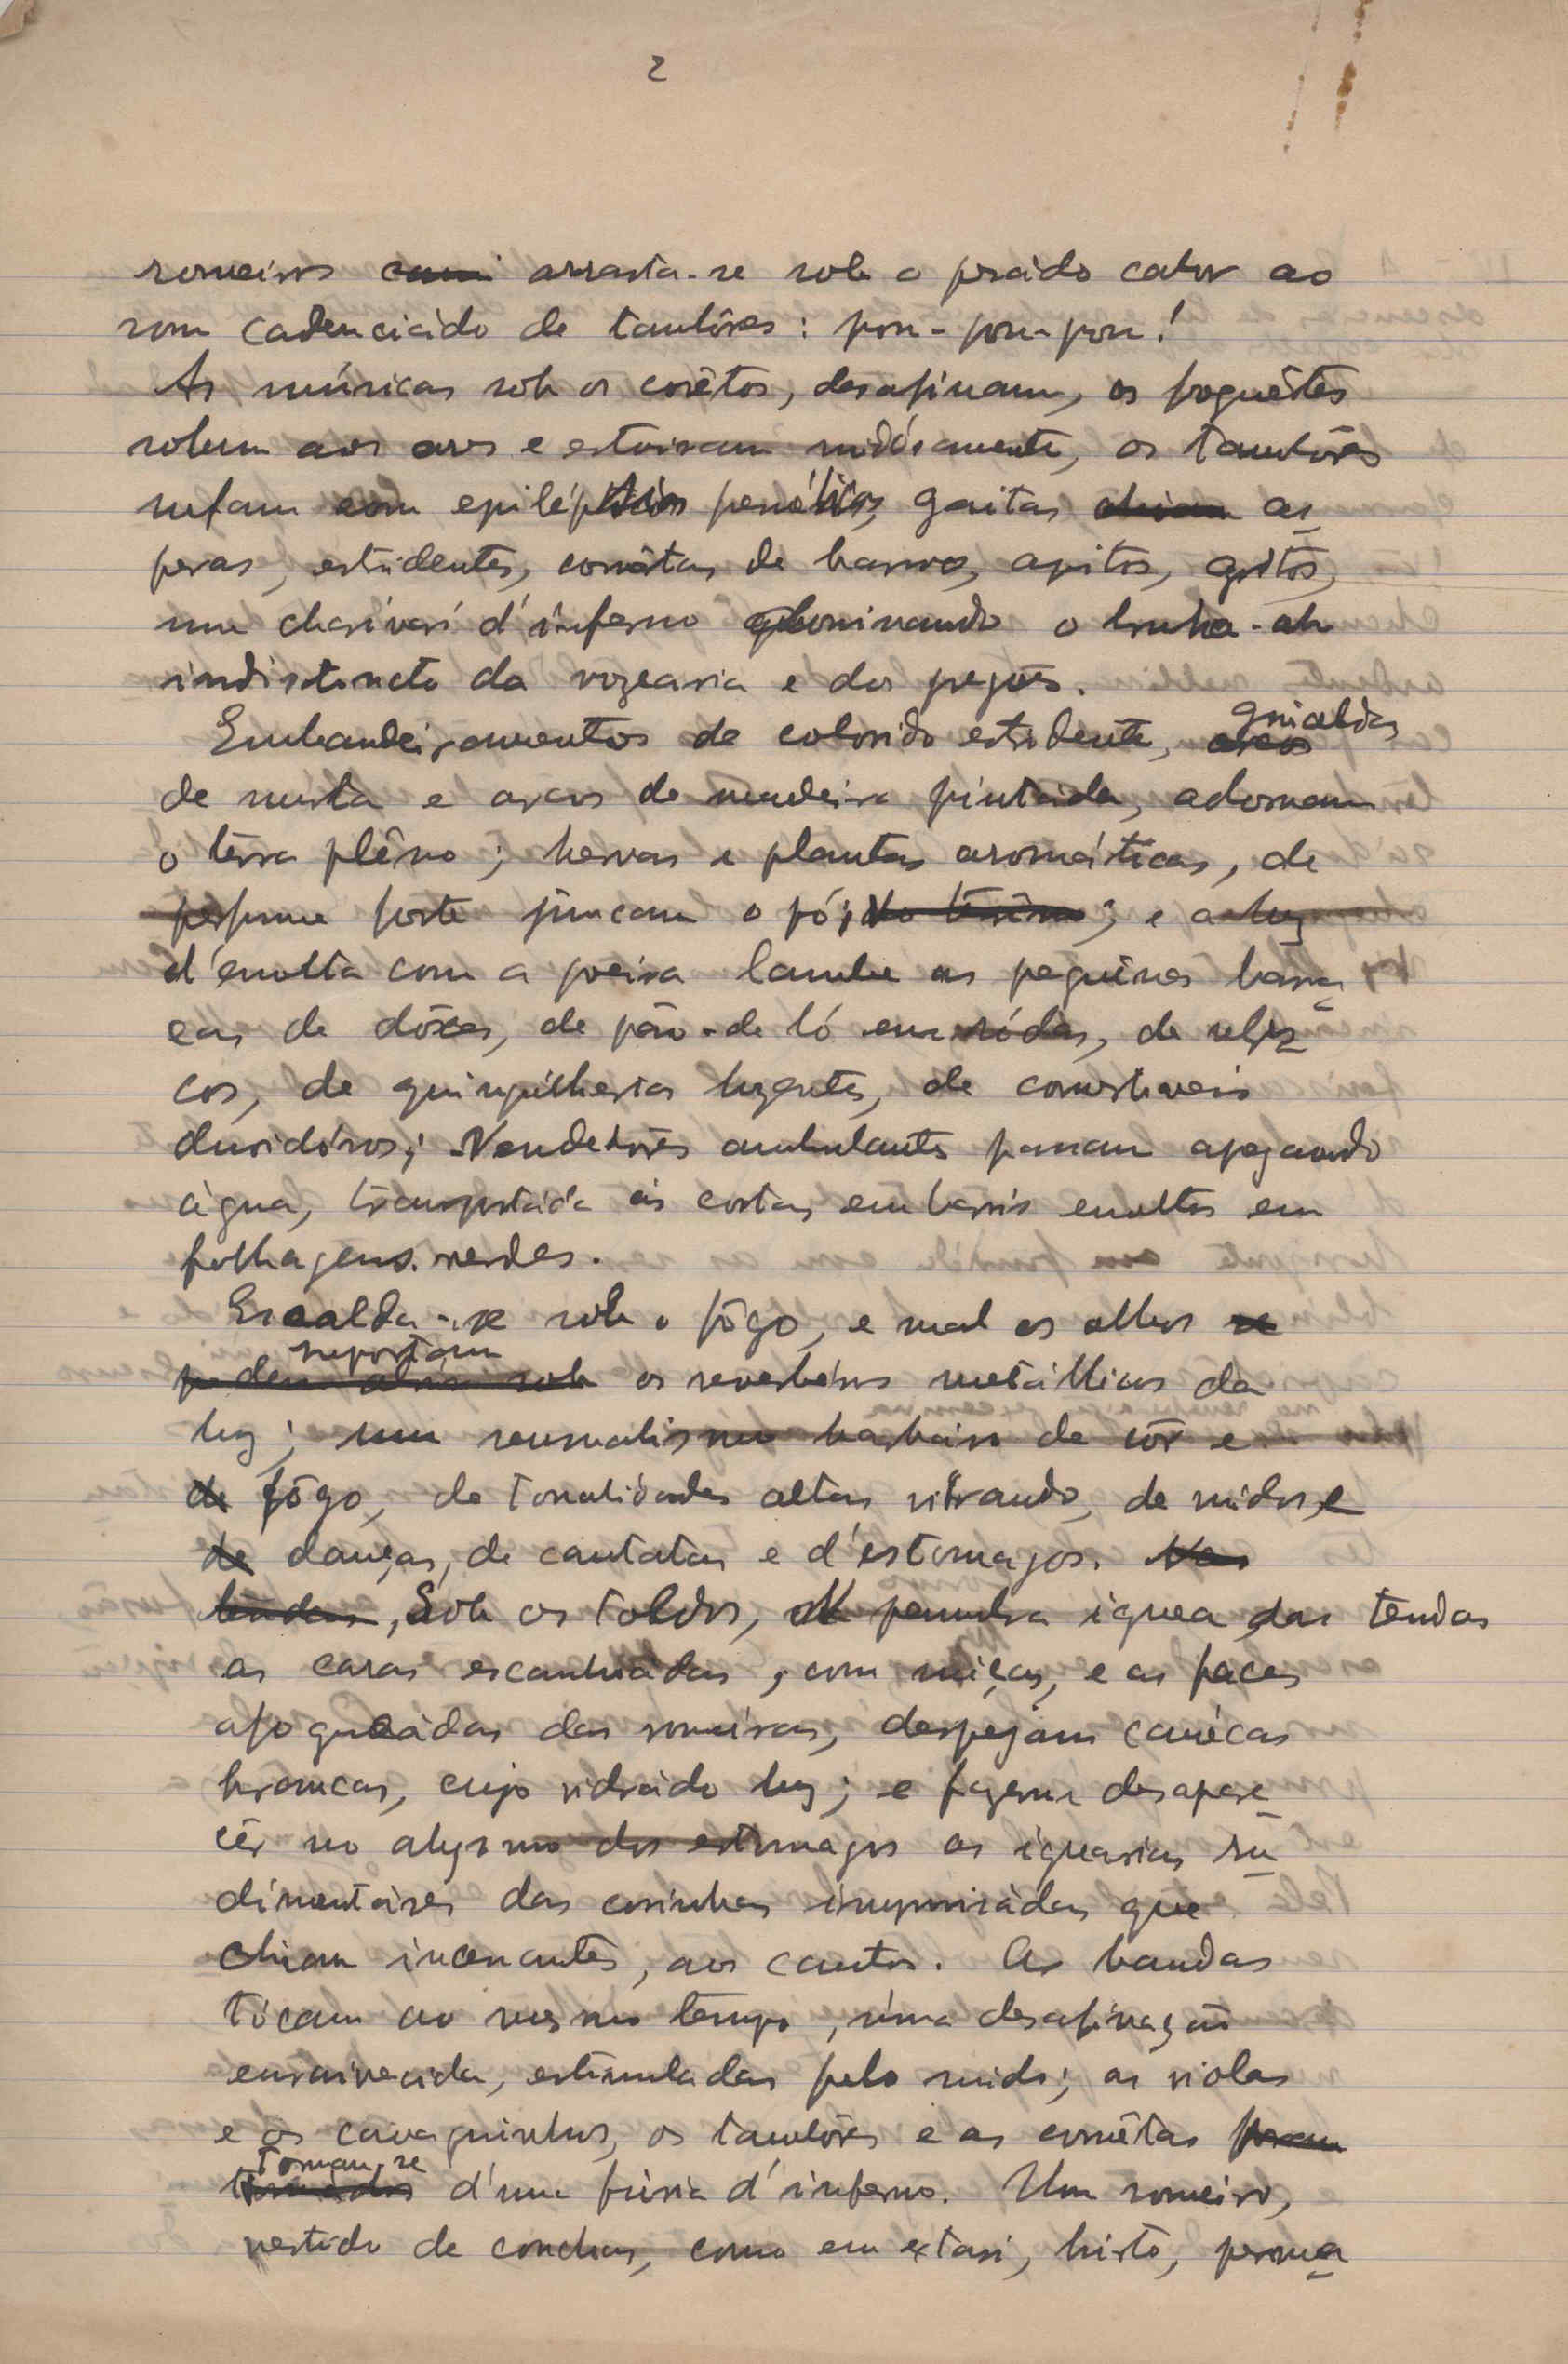 2
romeiros arrasta-se sob o pesádo calor ao
som cadenciádo de tambôres: pon-pon-pon!
As músicas sob os corêtos, desafinam, os foguêtes
sobem aos ares e estoiram ruidósamente, os tambôres
rufam com epilépticos frenéticos, gaitas as_
peras, estridentes, cornêtas de barro, apitos, gritos,
um charivari d'inferno dominando o bruha-ah
indistincto da vozearia e dos pregões.
Embandeiramentos de colorido estridente, grinaldas
de murta e arcos de madeira pintáda, adornam
o têrra plêno; hervas e plantas aromáticas, de
perfume forte juncam o pó; e a luz
d'envolta com a poeira lambe as pequênas barra_
cas de dôces, de pão-de ló em ródas, de refres_
cos, de quinquilherias luzentes, de comestiveis
duvidósos; Vendedôres ambulantes passam apregoando
água, transportáda ás costas em barris envoltos em
folhagens verdes.
Escalda-se sob o fôgo, e mal os olhos
suportam os reverbéros metállicos da
luz; sensualismo barbáro de côr e
fôgo, de tonalidades altas vibrando, de ruidos, e
danças, de cantatas e d'estomagos.
Sob os toldos, na penumbra ignea das tendas
as caras escanhoádas, com suiças, e as faces
afogueádas das romeiras, despejam canécas
brancas, cujo vidrádo luz; e fazem desapare_
cêr no abysmo dos estomagos as iguarias ru_
dimentáres das cosinhas improvisádas que
chiam incessantes, aos cantos. As bandas
tócam ao mesmo tempo, numa desafinação
enraivecida, estimuladas pelo ruido; as violas
e os cavaquinhos, os tambôres e as cornêtas
tomam-se d'uma fúria d'inferno. Um romeiro,
vestido de conchas, como em extasi, hirto, perma_